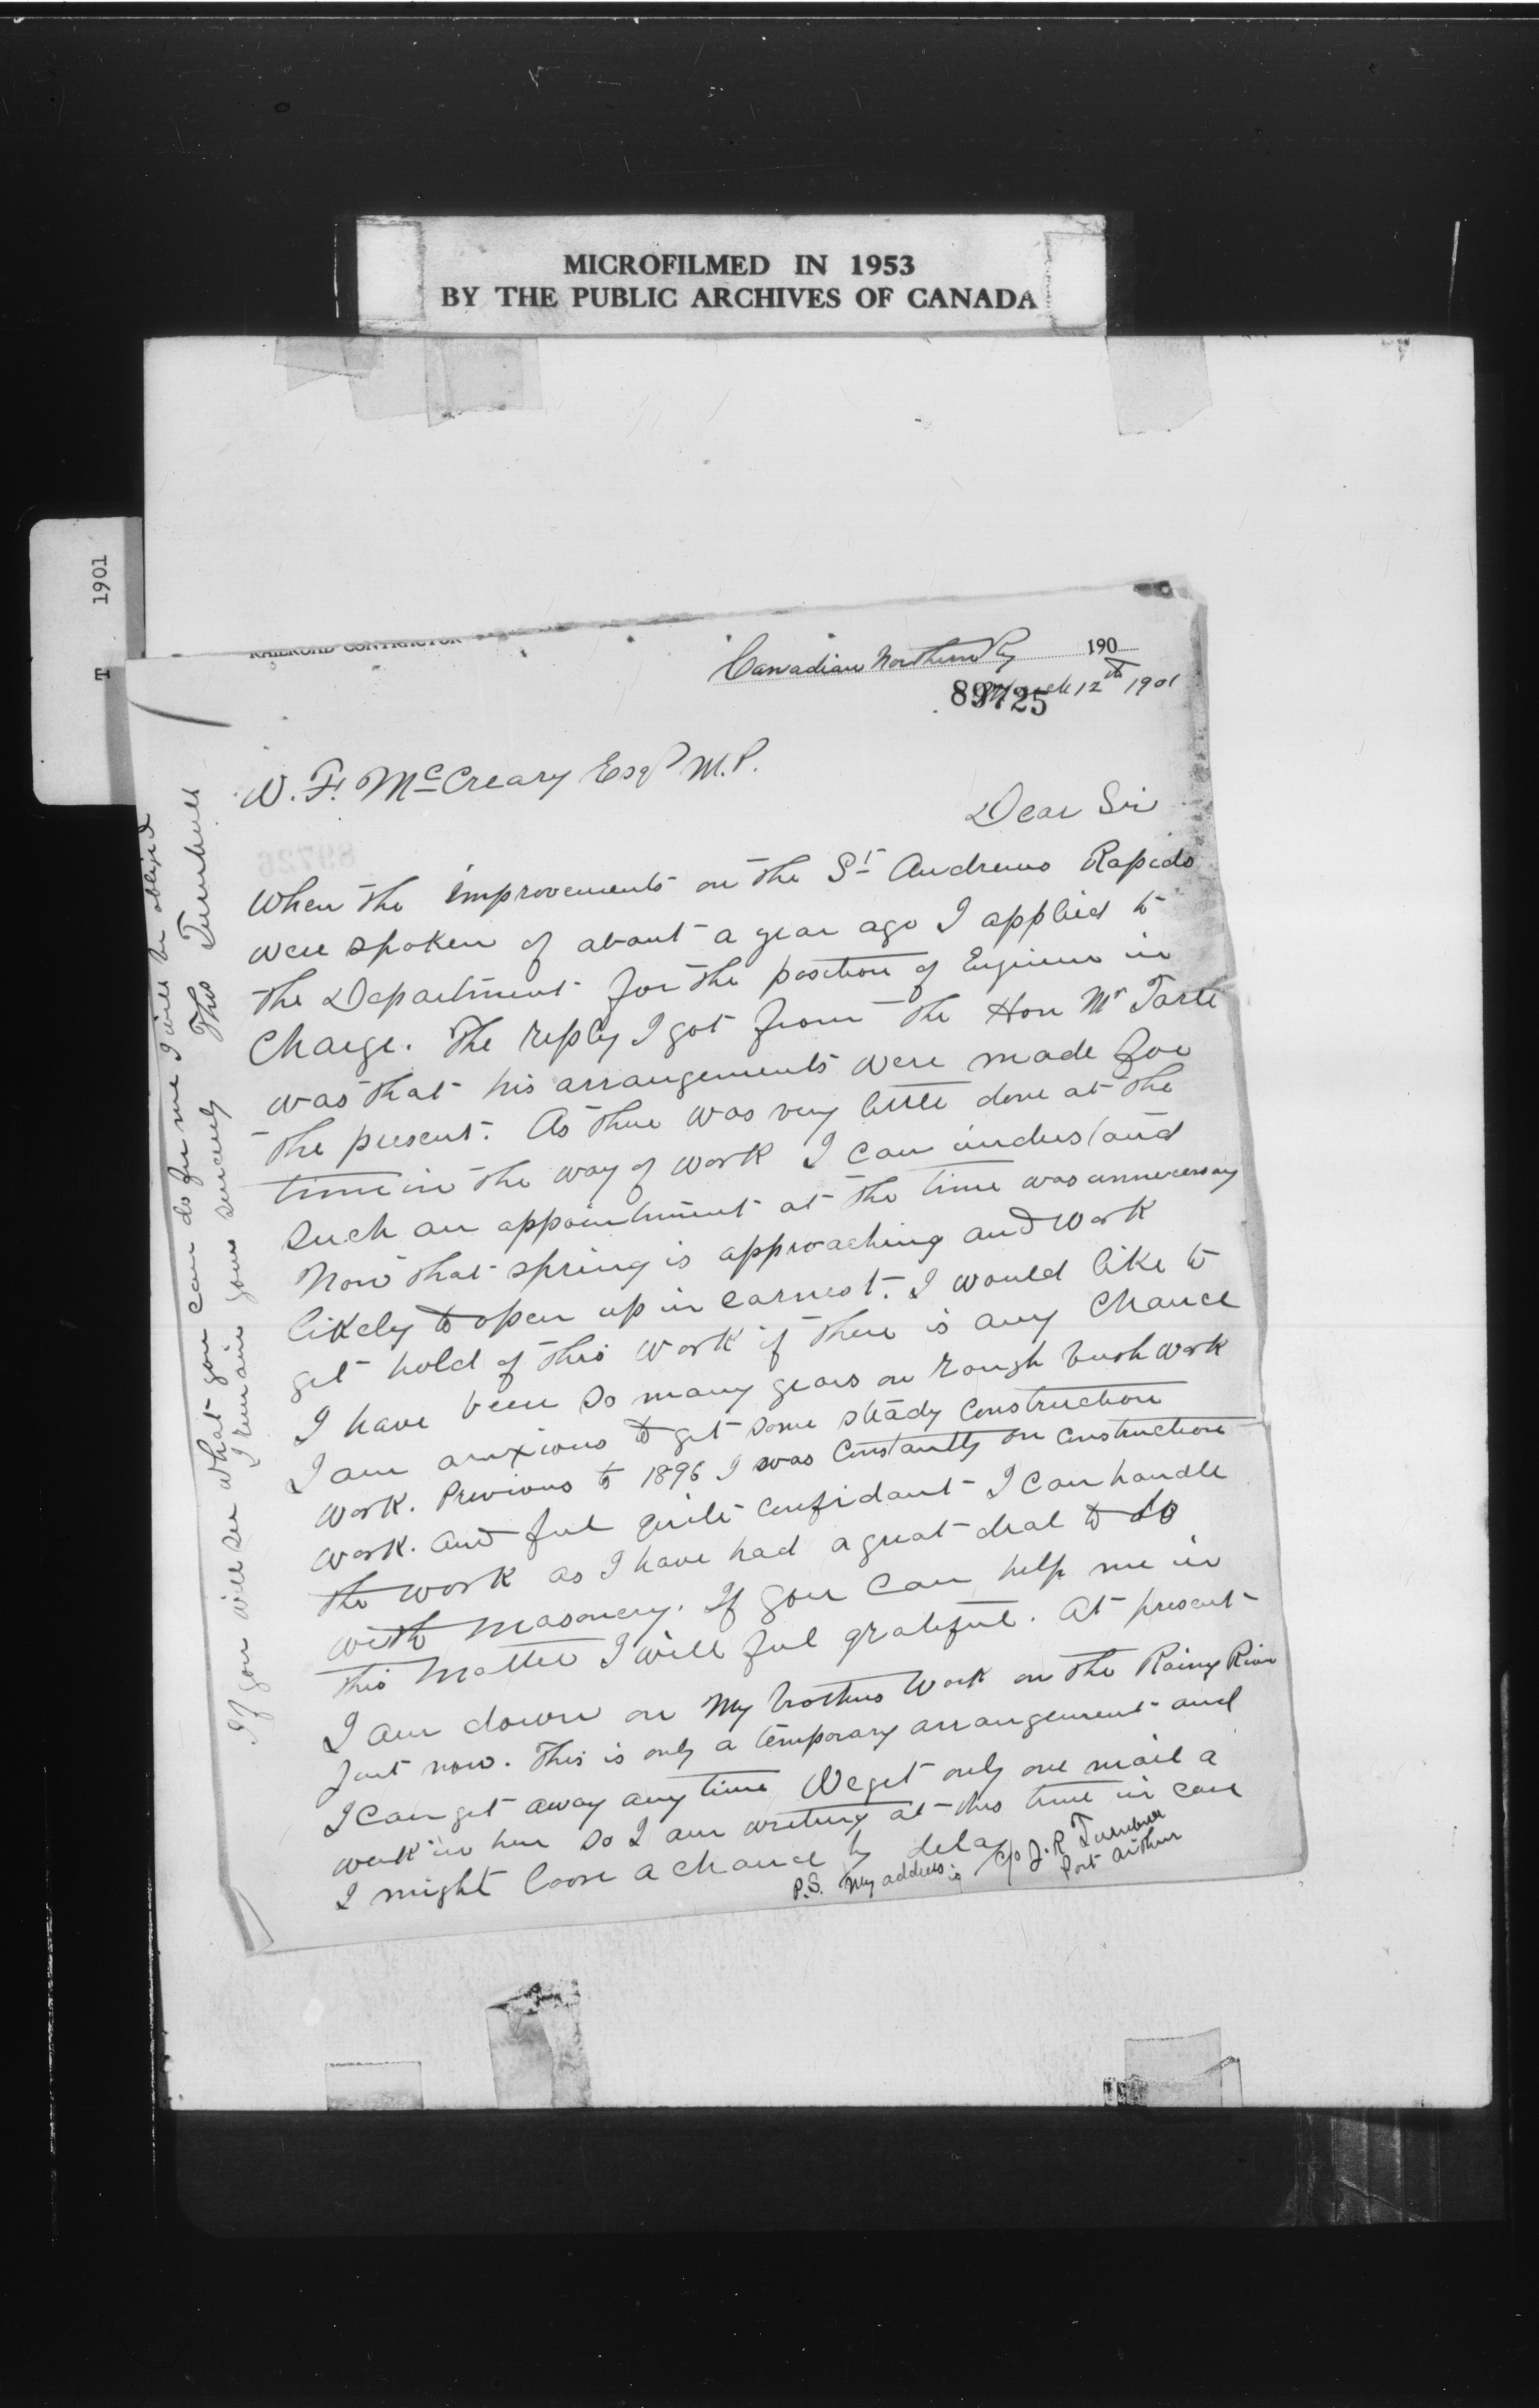 MICROFILMED IN 1953
BY THE PUBLIC ARCHIVES OF CANADA
1901
RAILROAD CONTRACTOR
Canadian Northern Ry 190
89725
March 12th 1901
W. F. McCreary Esqr M.P.
Dear Sir
When the improvements on the St Andrews Rapids
were spoken of about a year ago I applied to
the Department for the position of Engineer in
Charge. The reply I got from the Hon Mr Tarte
was that his arrangements were made for
the present. As there was very little done at the
time in the way of work I can understand
such an appointment at the time was unnecessary
Now that spring is approaching and work
likely to open up in earnest. I would like to
get hold of this work if there is any chance
I have been so many years on rough bush work
I am anxious to get some steady construction
work. Previous to 1896 I was constantly on construction
work. and feel quite confidant I can handle
the work as I have had a great deal to do
with masonery. If you can help me in
this matter I will feel grateful. At present
I am down on my brothers work on the Rainy River
Just now. This is only a temporary arrangement and
I can get away any time We get only one mail a
week in here so I am writing at this time in case
I might loose a chance by delay
P.S. My address is c/o J. R Turnbull
Port Arthur
If you will see what you can do for me I will be obliged
I remain yours sincerely
Thos Turnbull